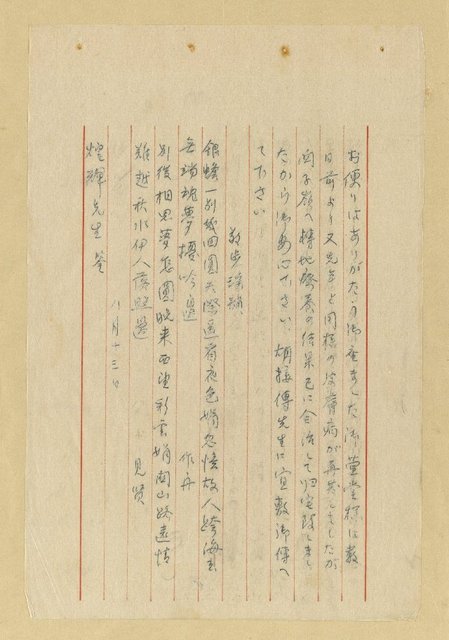 お便りはありがたう御座ました 御萱堂様は数
日前より又先年と同様の皮膚病が再発しましたが
関子嶺へ転地療養の結果已に全治して归宅致しまし
たから御安心下さい 傅先生に宜敷御傳へ
て下さい
敬步瑤韻
銀蟾一別幾回圓 天際遥看夜色娟 忽憶故人跨海去
無端魂夢擾吟邊 作舟
別後相思夢怎圓 晚来西望彩雲娟 関山路遠情
難越 秋水伊人落照邊 見賢
八月十三日
煌輝先生鑒